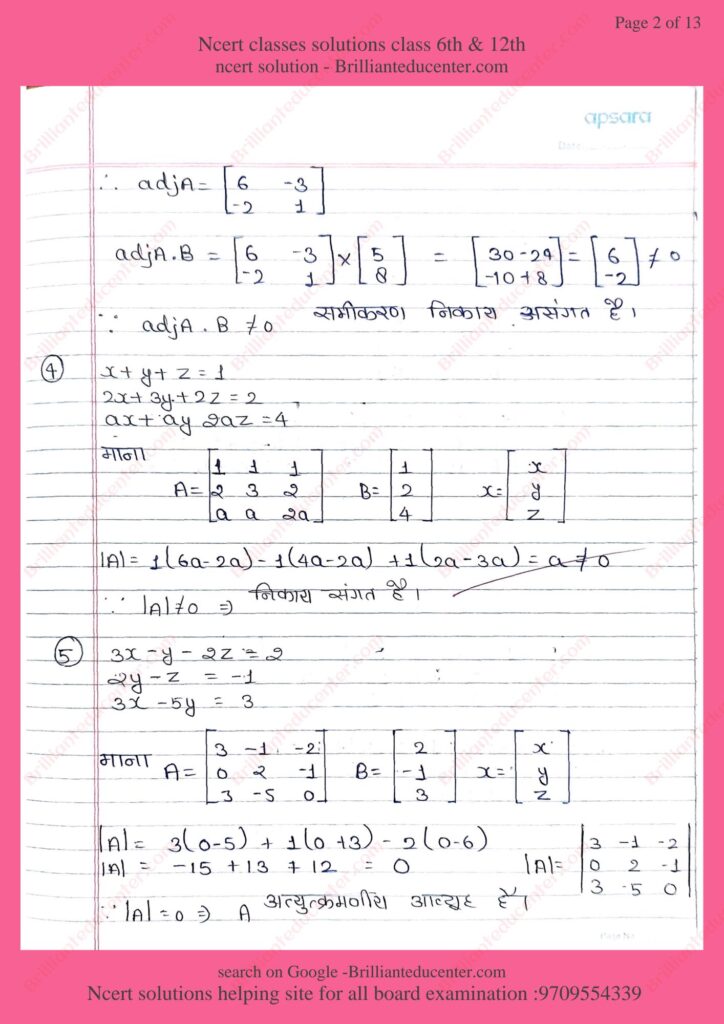 Page 2 of 13
Ncert classes solutions class 6th & 12th
ncert solution - Brillianteducenter.com
apsara
Date
∴ adjA = [6 -3
-2 1]
adjA.B = [6 -3 × [5 = [30-24 = [6 ≠ 0
-2 1] 8] -10+8] -2]
∵ adjA.B ≠ 0 समीकरण निकाय असंगत है।
④ x+y+z=1
2x+3y+2z=2
ax+ay 2az=4
माना
A= [1 1 1 B= [1 x= [x
2 3 2 2 y
a a 2a] 4] z]
|A|= 1(6a-2a)-1(4a-2a)+1(2a-3a)=a≠0
∵ |A|≠0 ⇒ निकाय संगत है।
⑤ 3x-y-2z=2
2y-z = -1
3x-5y = 3
माना A= [3 -1 -2 B= [2 x= [x
0 2 -1 -1 y
3 -5 0] 3] z]
|A|= 3(0-5)+1(0+3)-2(0-6)
|A| = -15+13+12 = 0 |A|= |3 -1 -2
0 2 -1
3 -5 0|
∵ |A|=0 ⇒ A अव्युत्क्रमणीय आव्यूह है।
search on Google -Brillianteducenter.com
Ncert solutions helping site for all board examination :9709554339